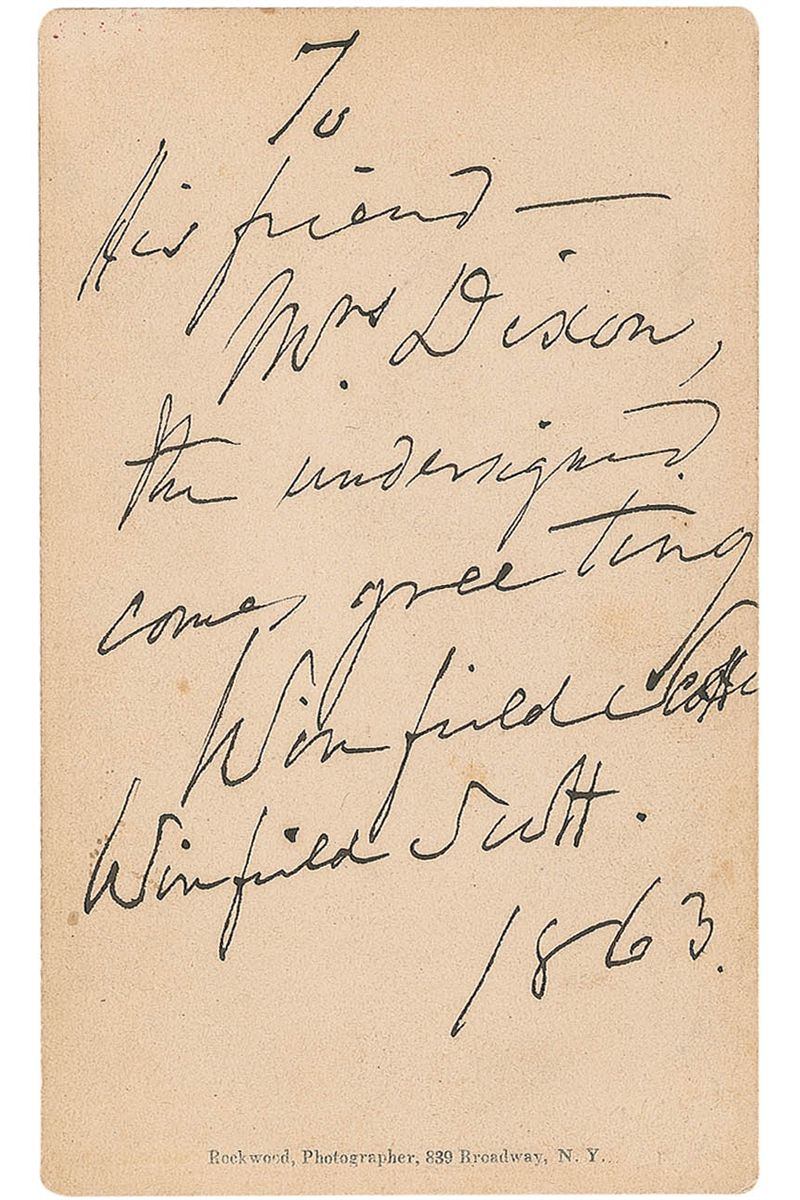 To
his friend —
Mrs. Dixon,
the undersigned
comes greeting
Winfield Scott
Winfield Scott.
1863.
Rockwood, Photographer, 839 Broadway, N. Y.